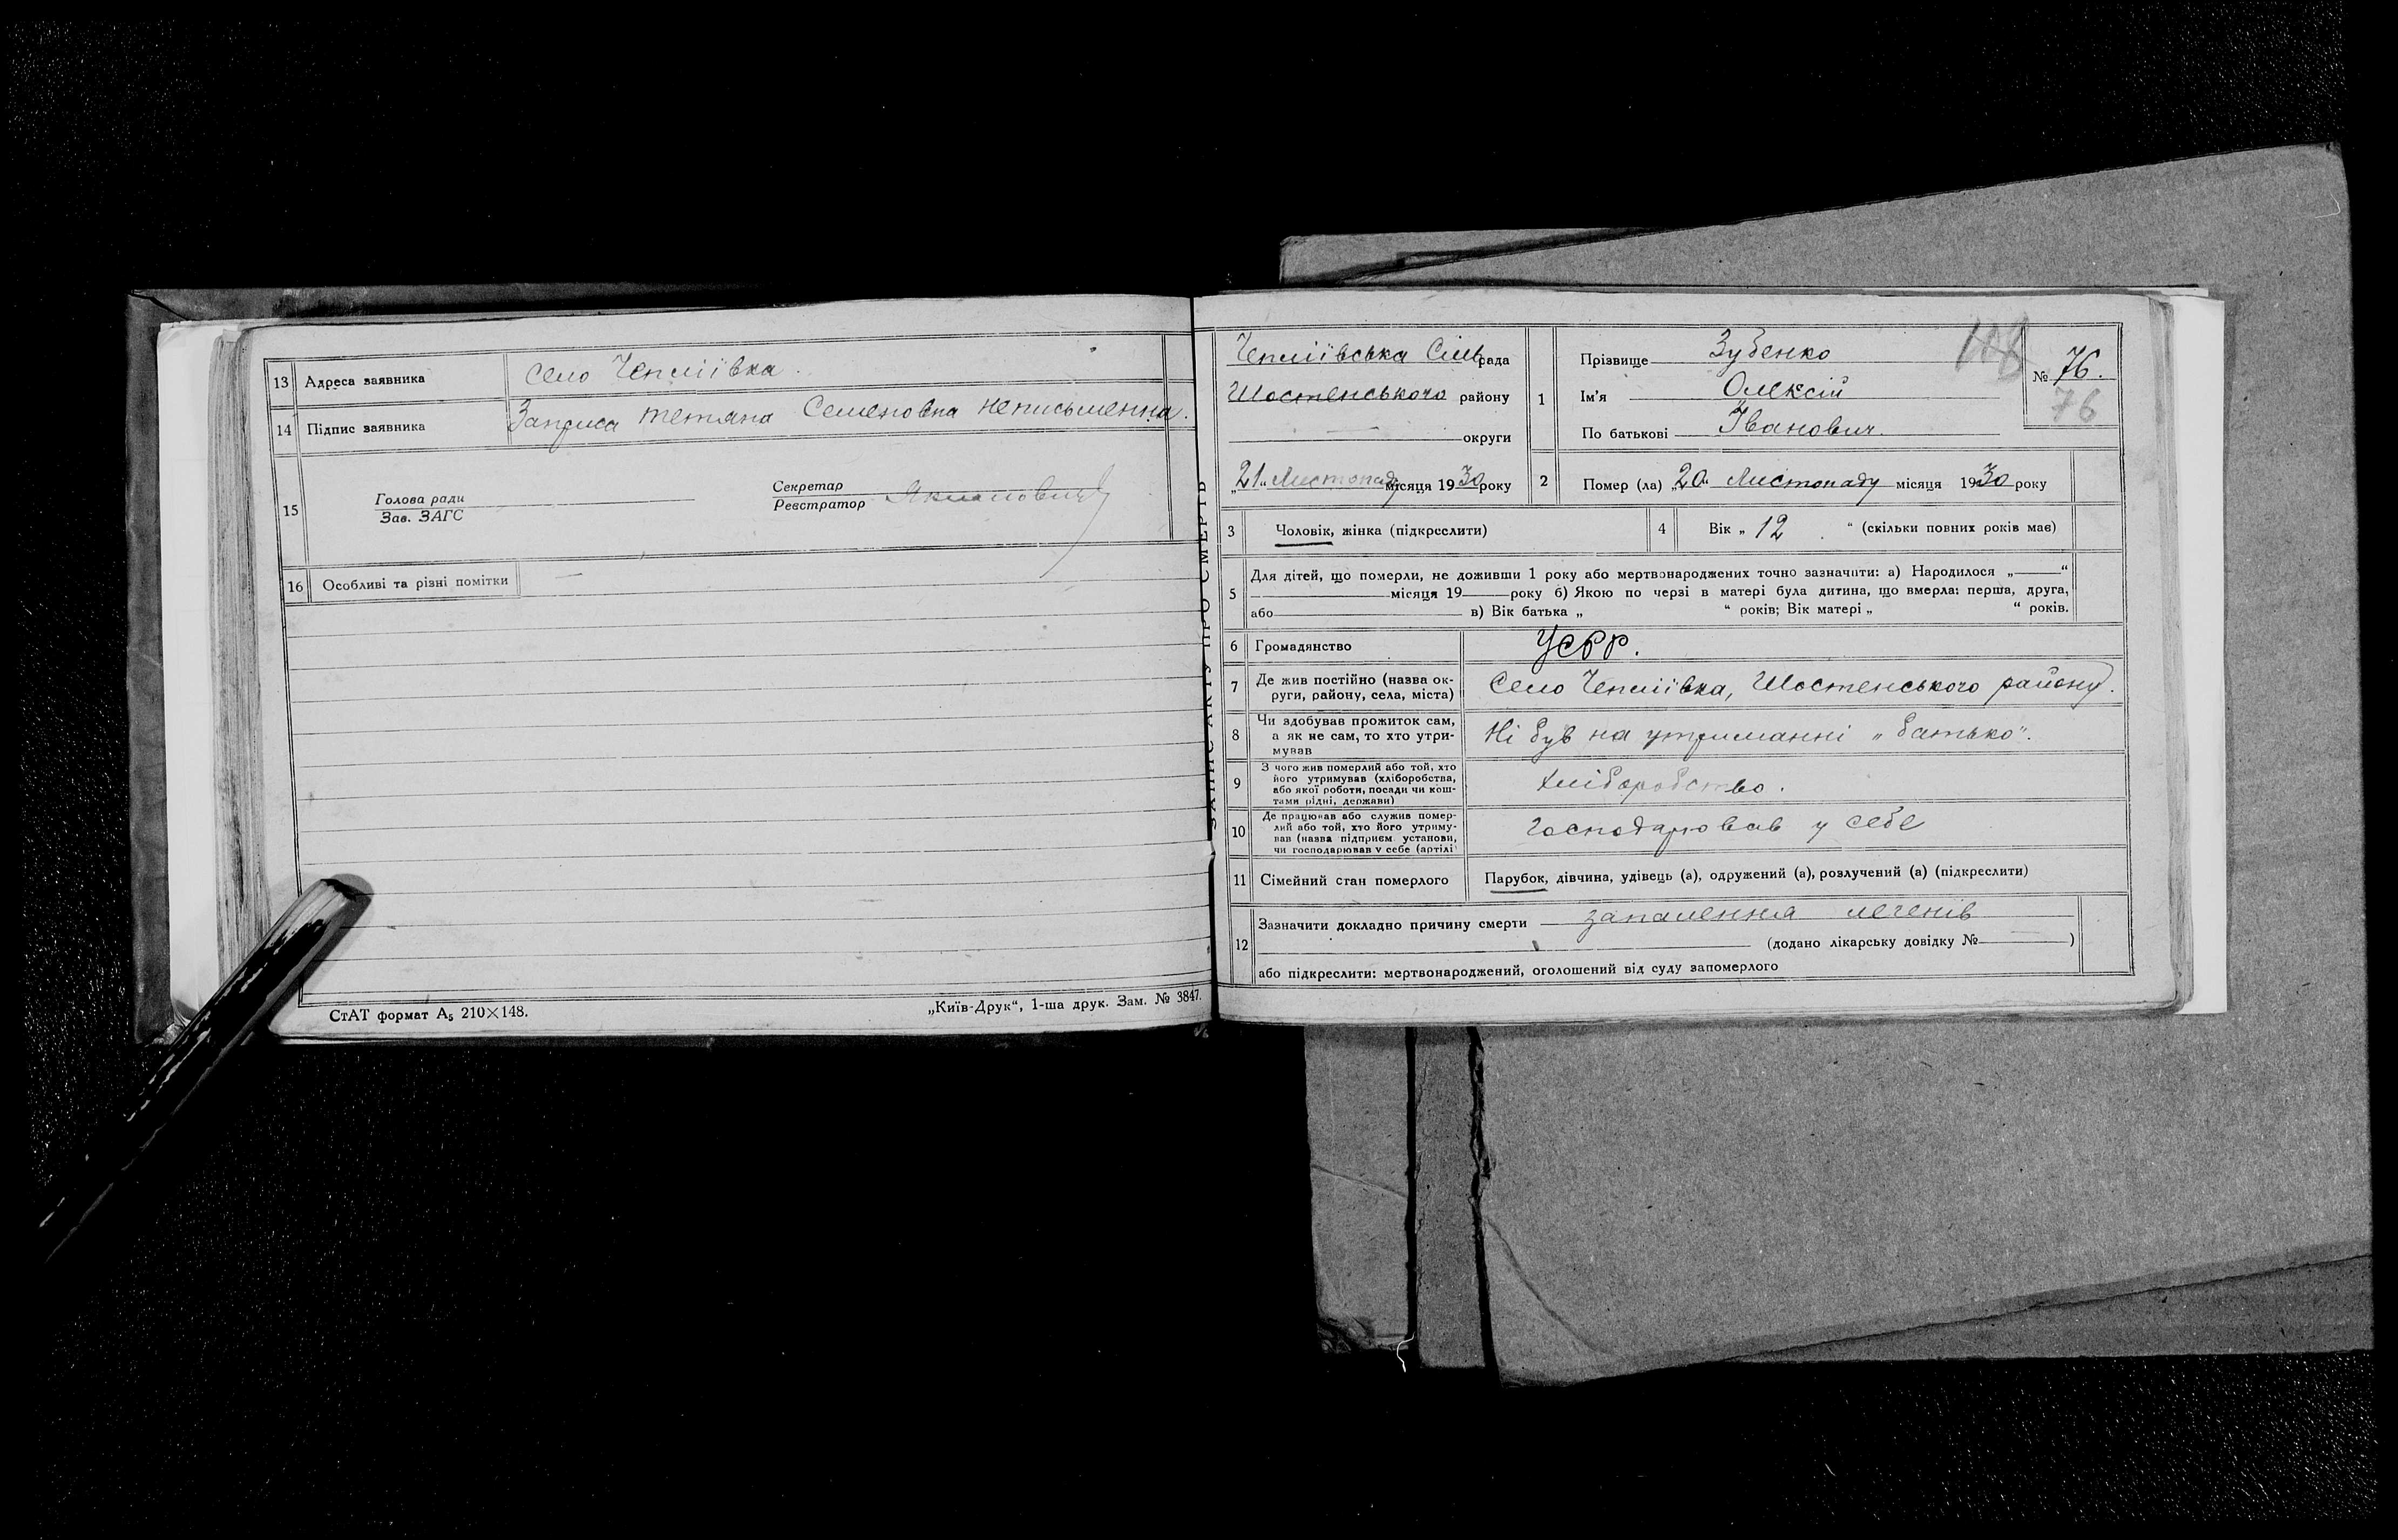 13 Адреса заявника село Чепліївка.
14 Підпис заявника Заприса Тетяна Семеновна неписьменна.
15 Голова ради
Зав. ЗАГС
Секретар
Реєстратор
16 Особливі та різні помітки —
СтАТ формат А5 210×148.
„Київ-Друк“, 1-ша друк. Зам. № 3847.
ЗАПИС АКТУ ПРО СМЕРТЬ
Чепліївська Сільрада
Шостенського району
округи
„21“ Листопаду місяця 1930 року
1 Прізвище Зубенко
Ім’я Олексій
По батькові Іванович.
108
№ 76.
76
2 Помер (ла) „20“ Листопаду місяця 1930 року
3 Чоловік, жінка (підкреслити)
4 Вік „ 12 “ (скільки повних років має)
5 Для дітей, що померли, не доживши 1 року або мертвонароджених точно зазначити: а) Народилося „ “
місяця 19 року б) Якою по черзі в матері була дитина, що вмерла: перша, друга,
або в) Вік батька „ “ років; Вік матері „ “ років.
6 Громадянство УСРР.
7 Де жив постійно (назва ок-
руги, району, села, міста) Село Чепліївка, Шостенського району.
8 Чи здобував прожиток сам,
а як не сам, то хто утри-
мував Ні був на утриманні „батько“.
9 З чого жив померлий або той, хто
його утримував (хліборобства,
або якої роботи, посади чи кош-
тами рідні, держави) Хліборобство.
10 Де працював або служив помер-
лий або той, хто його утриму-
вав (назва підприєм. установи,
чи господарював у себе (артілі) Господарював у себе
11 Сімейний стан померлого Парубок, дівчина, удівець (а), одружений (а), розлучений (а) (підкреслити)
12 Зазначити докладно причину смерти запалення легенів
(додано лікарську довідку № )
або підкреслити: мертвонароджений, оголошений від суду запомерлого